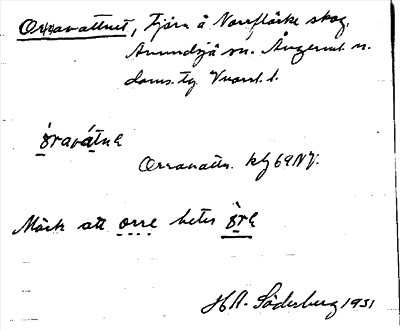 Orravattnet, Tjärn å Norrflärke skog,
Anundsjö sn. Ångerml. n.
doms. tg Vnorrl. l.
òravátnɐ
Orravattn. kbl 69NV.
Märk att orre heter òrɐ
H.A. Söderberg 1931